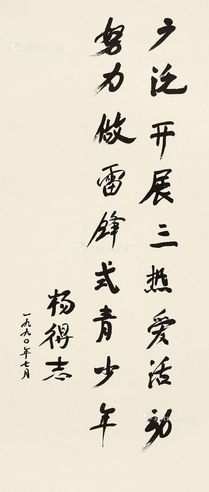 广泛开展三热爱活动
努力做雷锋式青少年
杨得志
一九九〇年七月